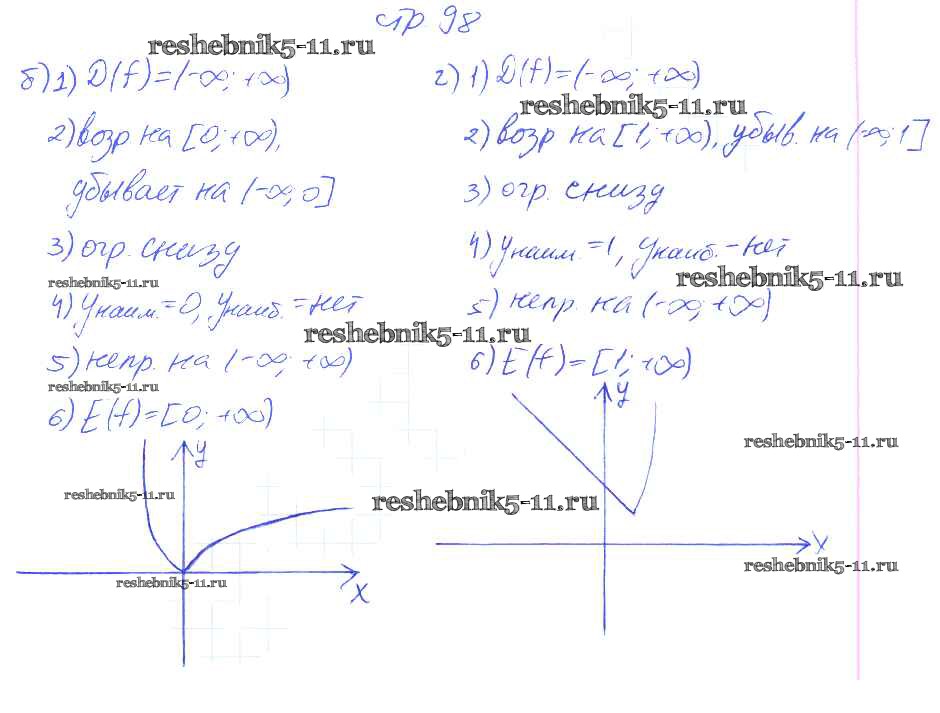 стр 98
reshebnik5-11.ru
б) 1) D(f)=(-∞; +∞)
2) возр на [0; +∞),
убывает на (-∞; 0]
3) огр. снизу
reshebnik5-11.ru
4) yнаим.=0, yнаиб.=нет
reshebnik5-11.ru
5) непр. на (-∞; +∞)
reshebnik5-11.ru
6) E(f)=[0; +∞)
y
reshebnik5-11.ru
reshebnik5-11.ru
reshebnik5-11.ru
x
г) 1) D(f)=(-∞; +∞)
reshebnik5-11.ru
2) возр на [1; +∞), убыв. на (-∞; 1]
3) огр. снизу
4) yнаим.=1, yнаиб.-нет
reshebnik5-11.ru
5) непр. на (-∞; +∞)
6) E(f)=[1; +∞)
y
reshebnik5-11.ru
x
reshebnik5-11.ru